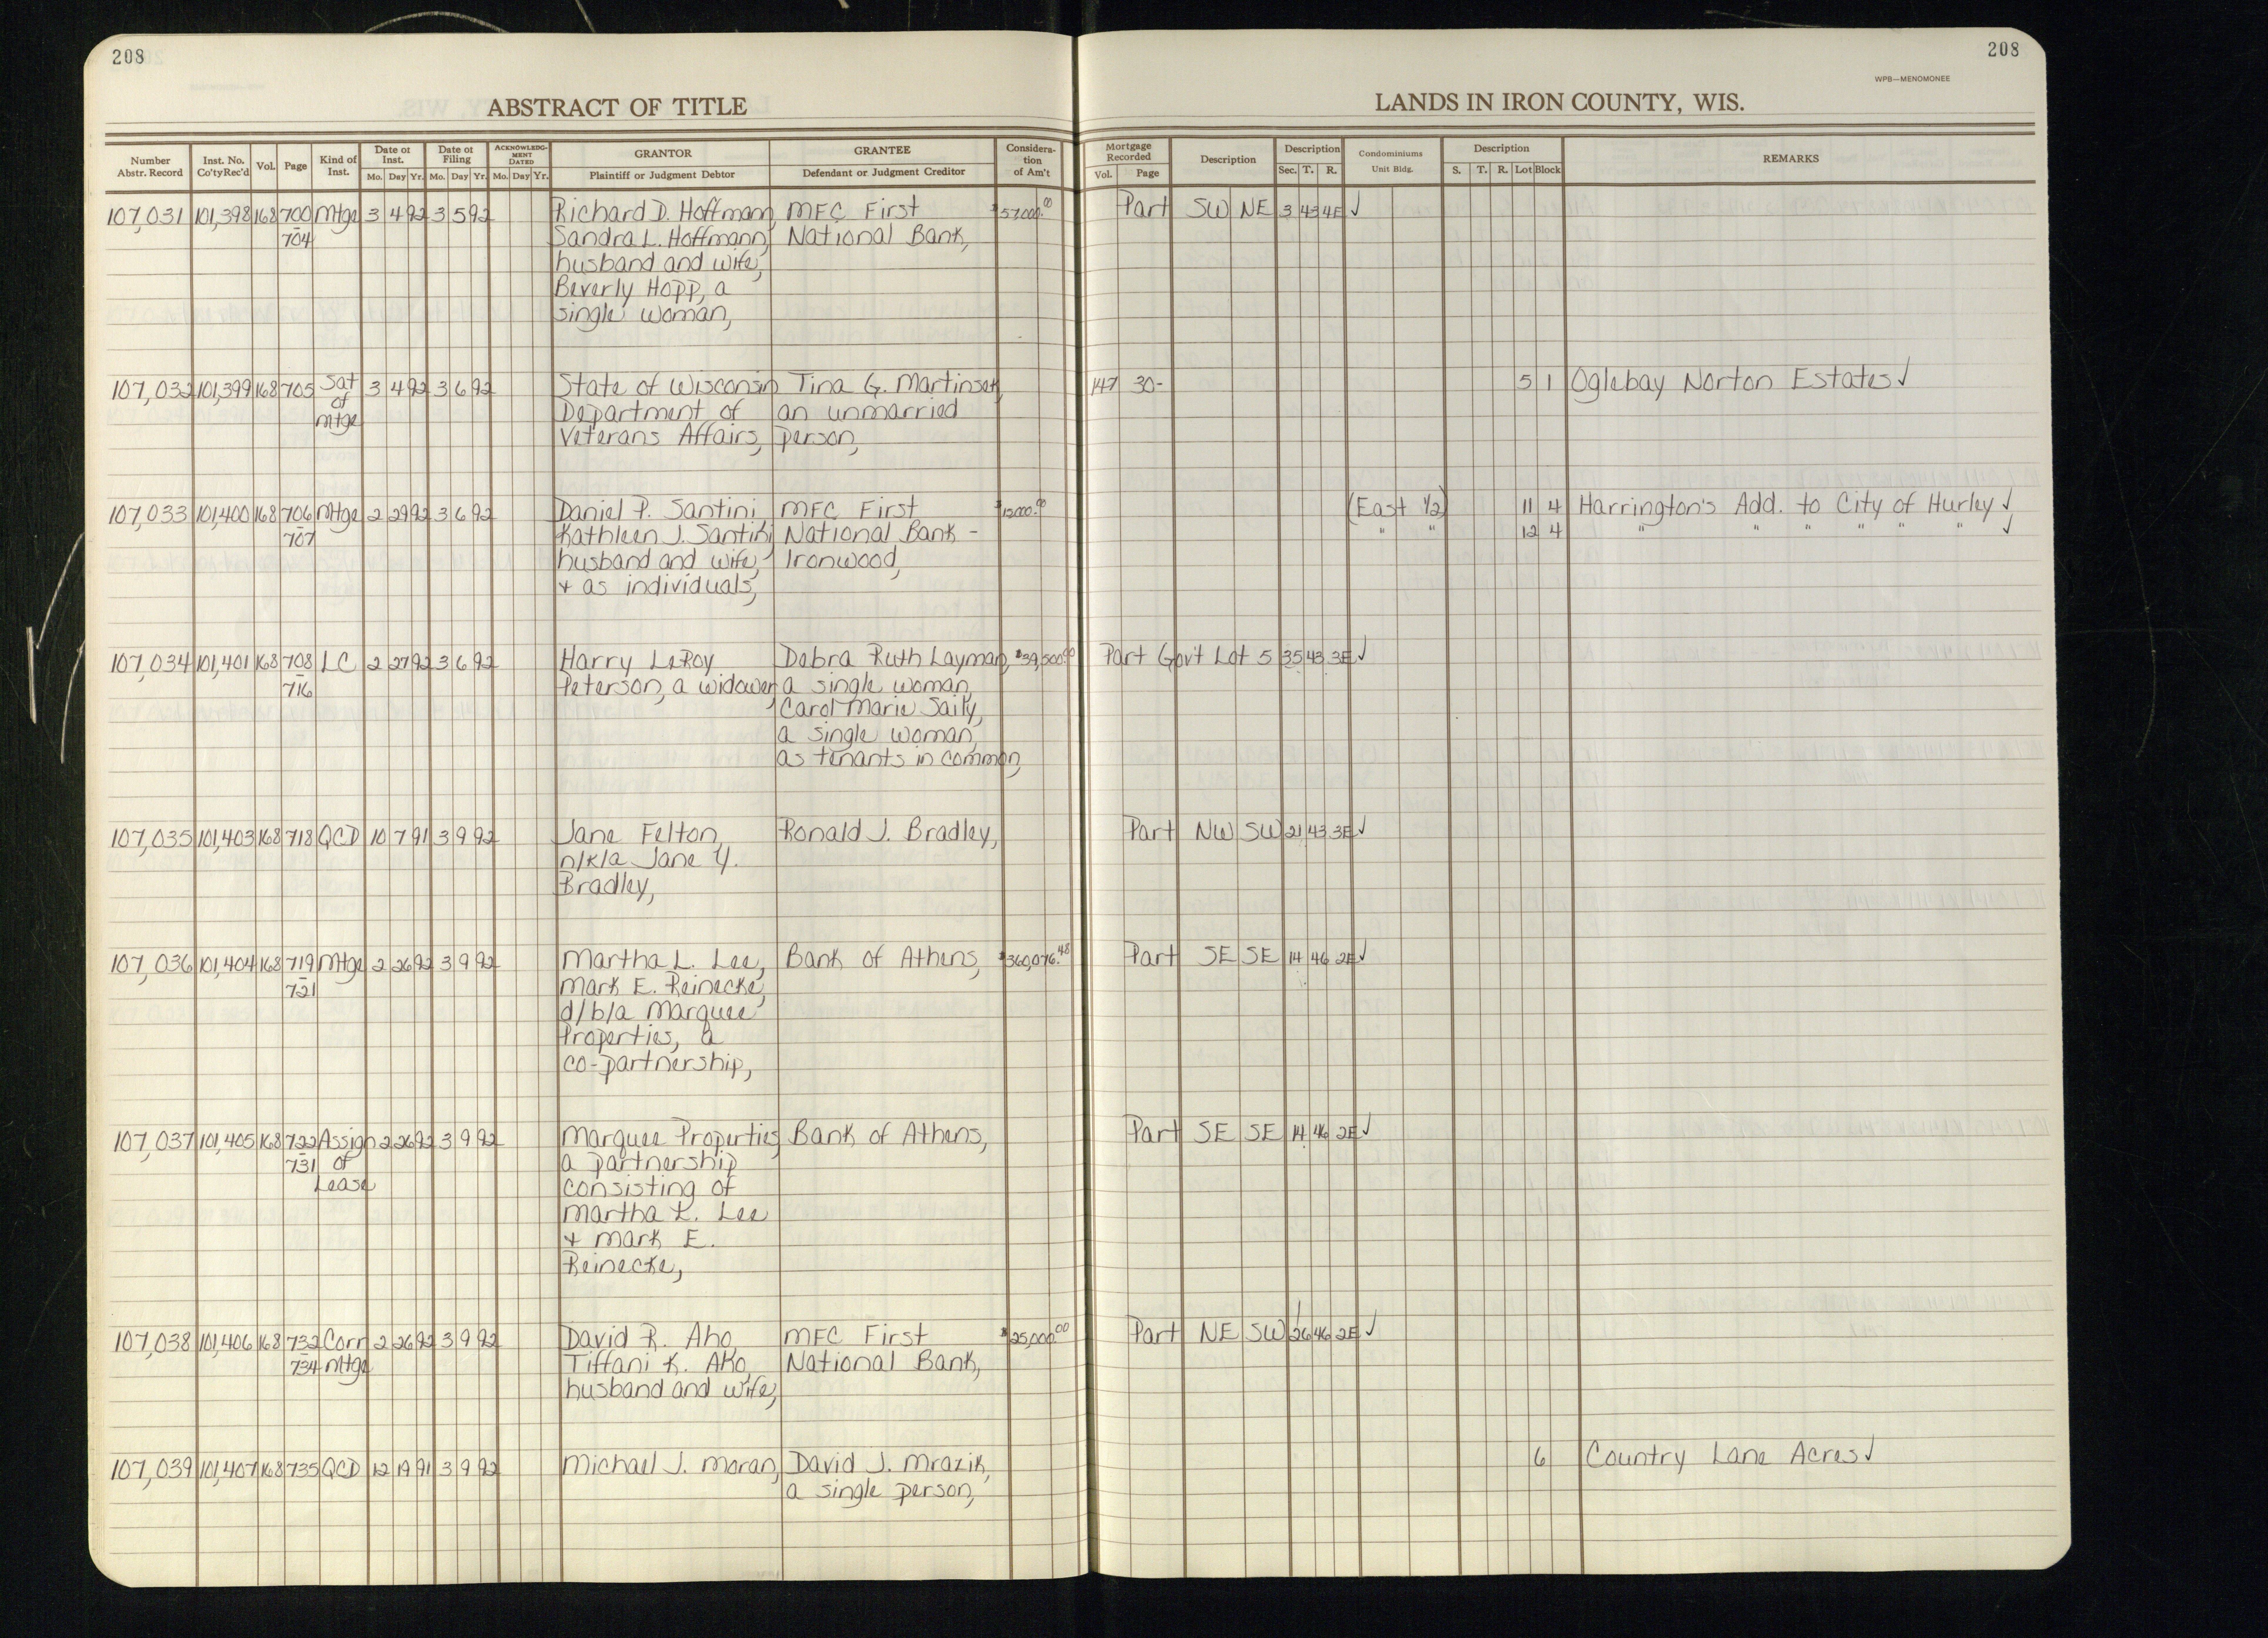 208
208
WPB—MENOMONEE
ABSTRACT OF TITLE
LANDS IN IRON COUNTY, WIS.
Number Abstr. Record | Inst. No. Co'ty Rec'd | Vol. | Page | Kind of Inst. | Date of Inst. Mo. Day Yr. | Date of Filing Mo. Day Yr. | ACKNOWLEDGMENT DATED Mo. Day Yr. | GRANTOR Plaintiff or Judgment Debtor | GRANTEE Defendant or Judgment Creditor | Consideration of Am't | Mortgage Recorded Vol. Page | Description | Description Sec. T. R. | Condominiums Unit Bldg. | Description S. T. R. Lot Block | REMARKS
107,031 101,398 168 700 Mtge 3 4 92 3 5 92 Richard D. Hoffmann, MFC First $57000.00 Part SW NE 3 43 4E ✓
- 704 Sandra L. Hoffmann, National Bank,
husband and wife,
Beverly Hopp, a
single woman,
107,032 101,399 168 705 Sat 3 4 92 3 6 92 State of Wisconsin Tina G. Martinsen, 147 30- 5 1 Oglebay Norton Estates ✓
of Department of an unmarried
Mtge Veterans Affairs, person,
107,033 101,400 168 706 Mtge 2 29 92 3 6 92 Daniel P. Santini MFC First $12000.00 (East 1/2) 11 4 Harrington's Add. to City of Hurley ✓
- 707 Kathleen J. Santini National Bank - " " 12 4 " " " " " " ✓
husband and wife, Ironwood,
+ as individuals,
107,034 101,401 168 708 LC 2 27 92 3 6 92 Harry LeRoy Debra Ruth Layman, $39,500.00 Part Gov't Lot 5 35 43 3E ✓
- 716 Peterson, a widower, a single woman,
Carol Marie Saily,
a single woman,
as tenants in common,
107,035 101,403 168 718 QCD 10 7 91 3 9 92 Jane Felton, Ronald J. Bradley, Part NW SW 21 43 3E ✓
n/k/a Jane Y.
Bradley,
107,036 101,404 168 719 Mtge 2 26 92 3 9 92 Martha L. Lee, Bank of Athens, $360,076.48 Part SE SE 14 46 2E ✓
- 721 Mark E. Reinecke,
d/b/a Marquee
Properties, a
co-partnership,
107,037 101,405 168 722 Assign 2 26 92 3 9 92 Marquee Properties, Bank of Athens, Part SE SE 14 46 2E ✓
- 731 of a partnership
Lease consisting of
Martha L. Lee
+ Mark E.
Reinecke,
107,038 101,406 168 732 Corr 2 26 92 3 9 92 David R. Aho, MFC First $25,000.00 Part NE SW 26 46 2E ✓
- 734 Mtge Tiffani K. Aho, National Bank,
husband and wife,
107,039 101,407 168 735 QCD 12 19 91 3 9 92 Michael J. Moran, David J. Mrazik, 6 Country Lane Acres ✓
a single person,